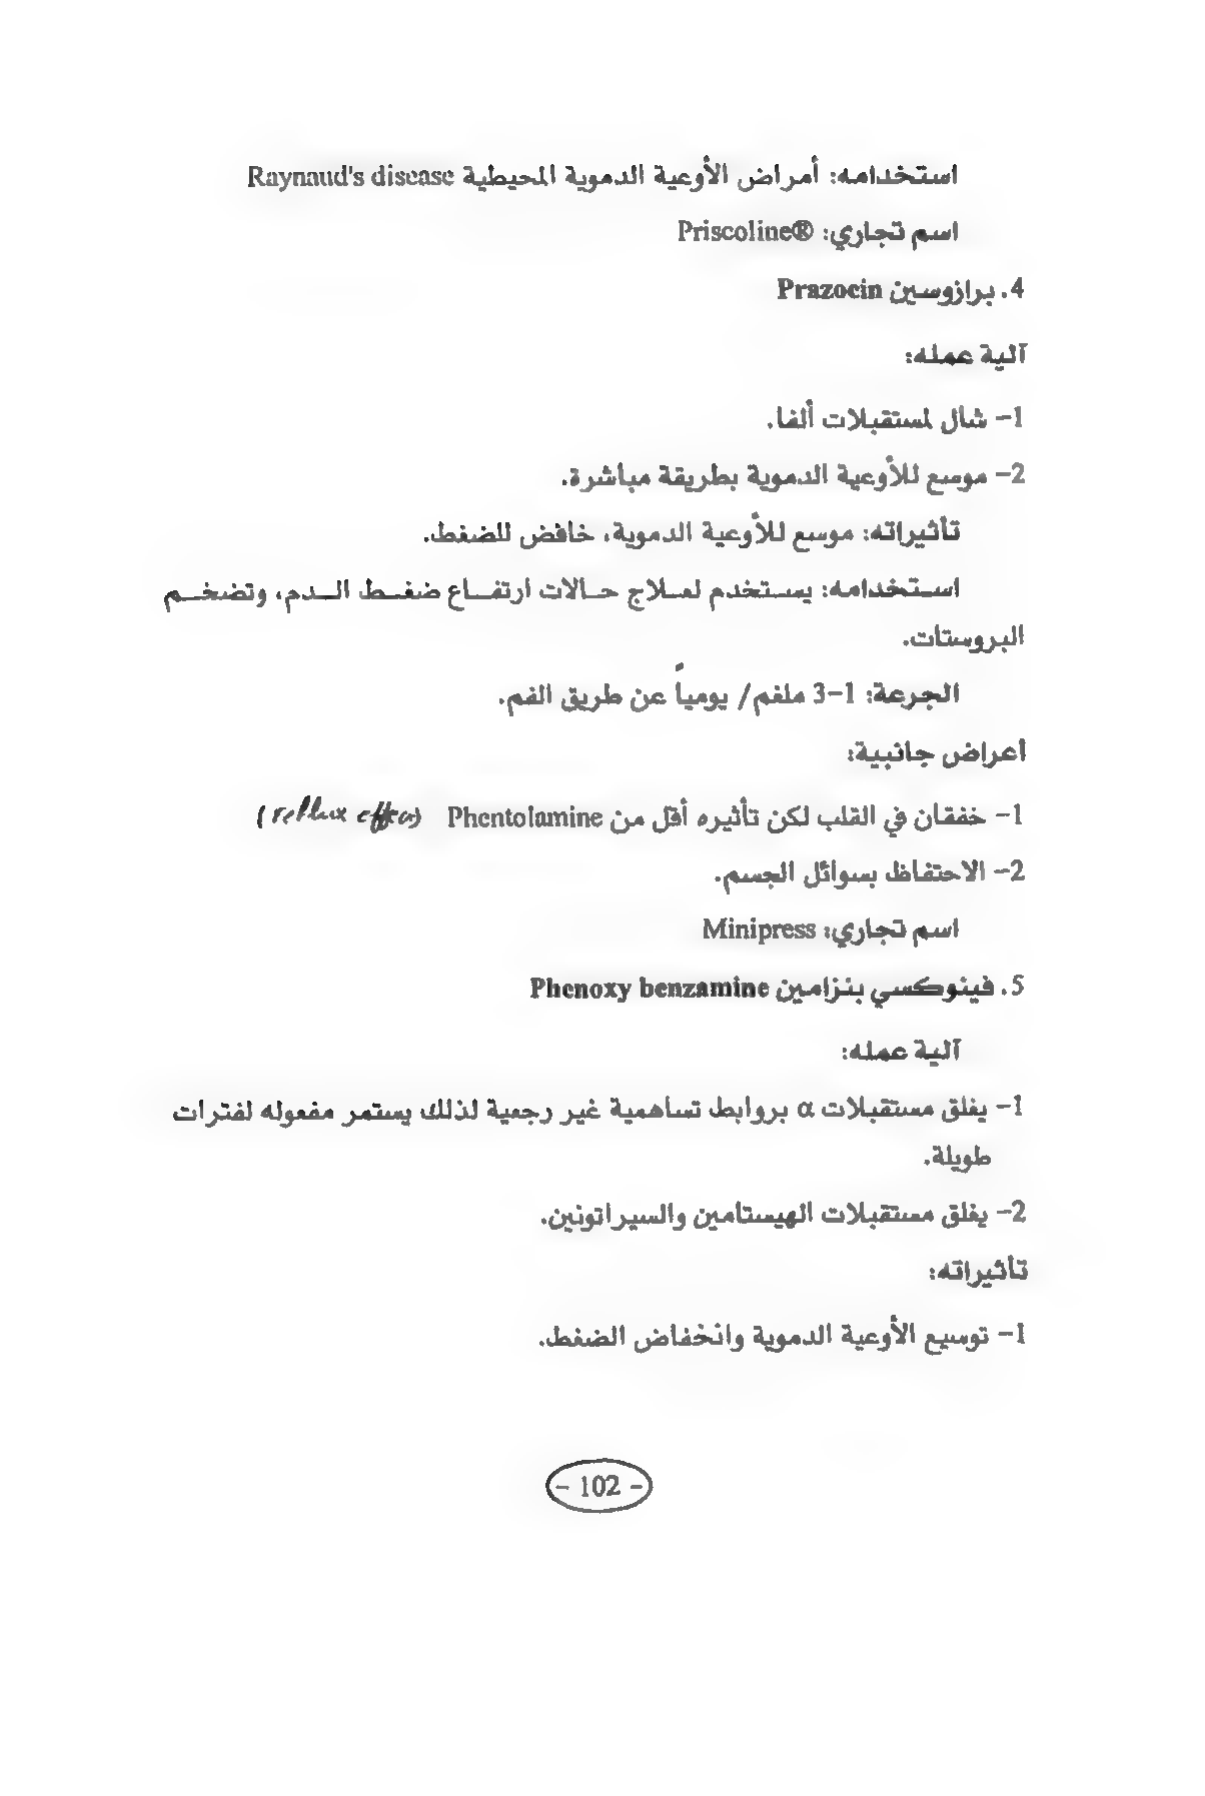 استخدامه: أمراض الأوعية الدموية المحيطية Raynaud's disease
اسم تجاري: Priscoline®
4. برازوسين Prazocin
آلية عمله:
1- شال لمستقبلات ألفا.
2- موسع للأوعية الدموية بطريقة مباشرة.
تأثيراته: موسع للأوعية الدموية، خافض للضغط.
استخدامه: يستخدم لعلاج حالات ارتفاع ضغط الدم، وتضخم
البروستات.
الجرعة: 1-3 ملغم/ يومياً عن طريق الفم.
أعراض جانبية:
1- خفقان في القلب لكن تأثيره أقل من Phentolamine
2- الاحتفاظ بسوائل الجسم.
اسم تجاري: Minipress
5. فينوكسي بنزامين Phenoxy benzamine
آلية عمله:
1- يغلق مستقبلات α بروابط تساهمية غير رجعية لذلك يستمر مفعوله لفترات
طويلة.
2- يغلق مستقبلات الهيستامين والسيراتونين.
تأثيراته:
1- توسيع الأوعية الدموية وانخفاض الضغط.
- 102 -